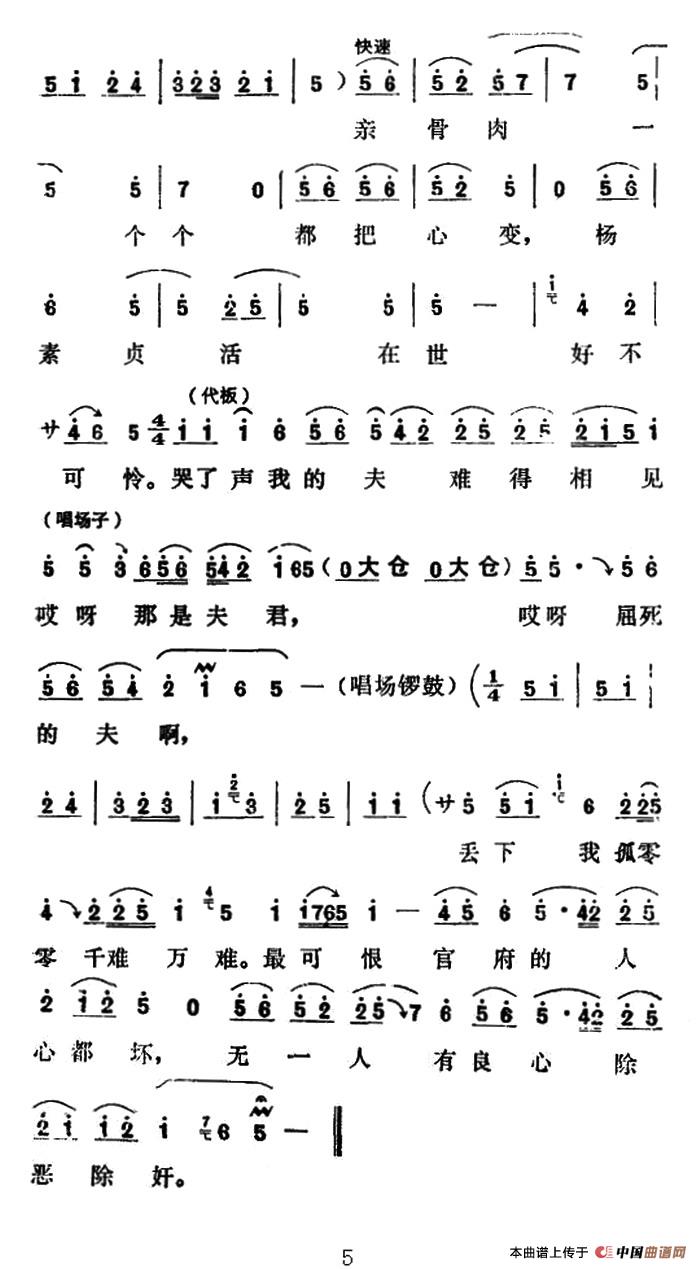 快速
5 i 2 4 | 3 2 3 2 i | 5 ) 5 6 | 5 2 5 7 | 7 5 |
亲 骨 肉 一
5 5 | 7 0 | 5 6 5 6 | 5 2 5 | 0 5 6 |
个 个 都 把 心 变， 杨
6 5 | 5 2 5 | 5 5 | 5 — | i 4 2 |
素 贞 活 在 世 好 不
（代板）
サ 4 6 5 4/4 i i i 6 5 6 5 4 2 2 5 2 5 2 i 5 i
可 怜。哭 了 声 我 的 夫 难 得 相 见
（唱场子）
5 5 3 6 5 6 5 4 2 i 6 5 （0 大 仓 0 大 仓） 5 5 · 5 6
哎 呀 那 是 夫 君， 哎 呀 屈 死
5 6 5 4 2 i 6 5 — （唱场锣鼓）（1/4 5 i | 5 i |
的 夫 啊，
2 4 | 3 2 3 | i 2 3 | 2 5 | i i （サ 5 5 i i 6 2 2 5
丢 下 我 孤 零
4 2 2 5 i 4 5 i i 7 6 5 i — 4 5 6 5 · 4 2 2 5
零 千 难 万 难。最 可 恨 官 府 的 人
2 i 2 5 0 5 6 5 2 2 5 7 6 5 6 5 · 4 2 2 5
心 都 坏， 无 一 人 有 良 心 除
2 i i 2 i 7 6 5 —
恶 除 奸。
5
本曲谱上传于 中国曲谱网